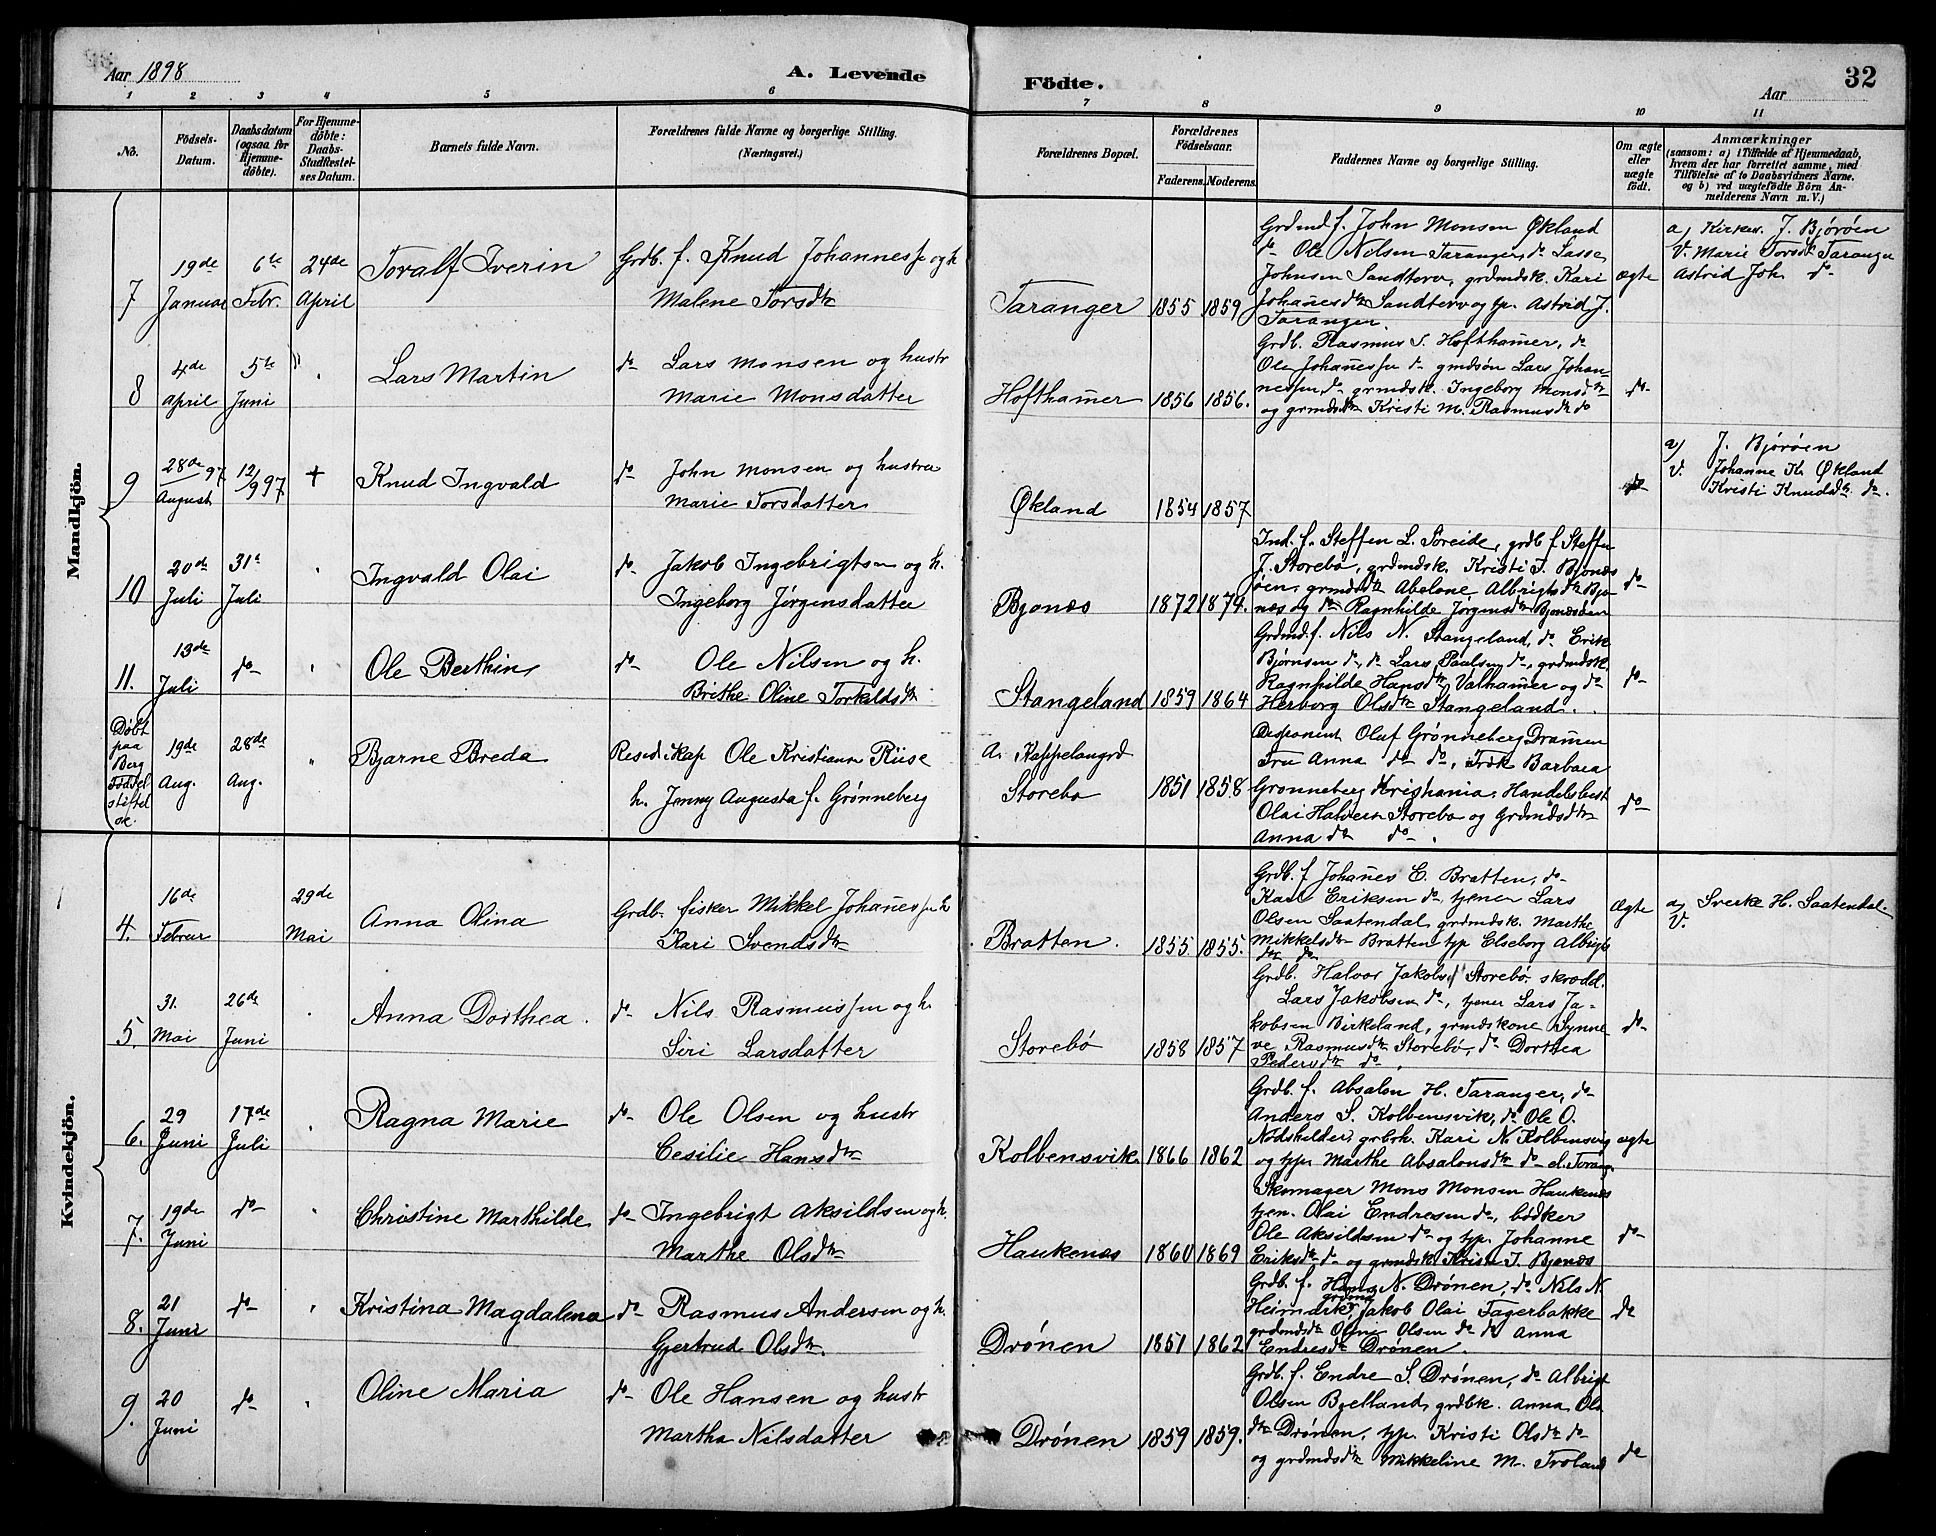 Aar 1898
A. Levende
Födte.
32
Aar
1 2 3 4 5 6 7 8 9 10 11
No.
Födsels-
Datum.
Daabsdatum
(ogsaa for
Hjemme-
döbte).
For Hjemme-
döbte:
Daabs-
Stadfæstel-
ses Datum.
Barnets fulde Navn.
Forældrenes fulde Navne og borgerlige Stilling.
(Næringsvei.)
Forældrenes Bopæl.
Forældrenes
Födselsaar.
Faderens. Moderens.
Faddernes Navne og borgerlige Stilling.
Om ægte
eller
uægte
födt.
Anmærkninger
(saasom: a) i Tilfælde af Hjemmedaab,
hvem der har forrettet samme, med
Tilföielse af to Daabsvidners Navne.
og b) ved uægtefödte Börn An-
melderens Navn m. V.)
Mandkjön.
7
19de
Januar
6te
Febr.
24de
April
Toralf Iverin
Grdb. f. Knud Johannessen og h
Malene Torsdtr
Taranger
1855 1859
Grdmd f. John Monsen Økland
do Ole Nilsen Taranger, do Lasse
Johnsen Sandtorv, grdmdsk. Kari
Johannesdtr Sandtorv og tp. Astrid J.
Taranger.
ægte
a) Kirkes. J. Bjørøen
V. Marie Torsdtr Taranger
Astrid Joh. do
8
4de
April
5te
Juni
"
Lars Martin
do Lars Monsen og hustr
Marie Monsdatter
Hofthamer
1856 1856.
Grdb. Rasmus S. Hofthamer, do
Ole Johannessen do grdmdsøn Lars Johan-
nessen, do grdmdsk. Ingeborg Monsdtr
og grdmdsdtr Kristi M. Rasmusdtr do
do
9
28de 97
August
12/9 97
+
Knud Ingvald
do John Monsen og hustru
Marie Torsdatter
Økland
1854 1857
do
a) J. Bjørøen
V. Johanne K. Økland
Kristi Knudsdtr do.
10
20de
Juli
31te
Juli
Ingvald Olai
do Jakob Ingebrigtsen og h.
Ingeborg Jørgensdatter
Bjonæs
1872 1874.
Ind. f. Steffen L. Søreide, grdb f. Steffen
J. Storebø, grdmdsk. Kristi J. Bjonæs
øen, grdmdsdtr Abelone Albrigtsdtr Bjo-
næs og do Ragnhilde Jørgensdtr Bjonæsøen
do
11.
13de
Juli
do
Ole Berthin
do Ole Nilsen og h.
Brithe Oline Torkeldsdtr
Stangeland
1859 1864
Grdmd. f. Nils N. Stangeland, do Erik
Bjørnsen do, do Lars Paulsen do, grdmdsk.
Ragnhilde Hansdtr Valhamer og do
Herborg Olsdtr Stangeland.
do
Døbt
paa
Berg
Fødsel
stiftel
se.
19de
Aug.
28de
Aug.
Bjarne Breda
Resid. Kap Ole Kristian Riise
h. Jenny Augusta f. Grønneberg
a. Kappelangrd
Storebø
1851 1858
Disponent Oluf Grønneberg Dramen
Fru Anna do do, Frøk Barbara
Grønneberg Kristiania, Handelsbest
Olai Halvorsen Storebø og Grdmdsdtr
Anna do do.
do
Kvindekjön.
4.
16de
Februar
29de
Mai
Anna Olina
Grdb. fisker Mikkel Johannessen h
Kari Svendsdtr
Bratten.
1855. 1855.
Grdb. f Johannes E. Bratten, do
Karl Eriksen do, tjener Lars
Olsen Saatendal, grdmdsk. Marthe
Mikkelsdtr Bratten tjp Elseborg Albrigts
dtr do
Ægte
a) Sverke H. Saatendal.
V.
5.
31.
Mai
26de
Juni
Anna Dorthea.
do Nils Rasmussen og h.
Siri Larsdatter
Storebø
1858 1857
Grdb. Halvor Jakobs. Storebø, skrædd.
Lars Jakobsen do, tjener Lars Ja-
kobsen Birkeland, grdmdskone Synne
ve Rasmusdtr Storebø, do Dorthea
Pedersdtr do.
do
6.
29
Juni
17de
Juli
Ragna Marie
do Ole Olsen og hustr
Cesilie Hansdtr
Kolbensvik
1866 1862
Grdb. f. Absalon H. Taranger, do
Anders S. Kolbensvik, do Ole O.
Nødskelder, grbsk. Kari N. Kolbensvig
og tjp. Marthe Absalonsdtr do
ægte
7.
19de
Juni
do
Christine Marthilde
do Ingebrigt Aksildsen og h.
Marthe Olsdtr
Haukenæs
1860 1869
Skomager Mons Monsen Haukenæs
tjen. Olai Endresen do, bødker
Ole Aksildsen do og tjp. Johanne
Eriksdtr do og grdmdsk Kristi J. Bjonæs
do
8.
21
Juni
do
Kristina Magdalena
do Rasmus Andersen og h.
Gjertrud Olsdtr.
Drönen
1851 1862
Grdb. f. Hans N. Drönen, do Nils N.
Jakob Olai Fagerbakke
grdmdsdtr Oline Olsen do do Anna
Endresdtr Drönen.
do
9.
20
Juni
do
Oline Maria
do Ole Hansen og hustr
Martha Nilsdatter
Drönen
1859 1859.
Grdb. f. Endre S. Drönen, do Albrigt
Olsen Bjelland, grdbk. Anna Ols
dtr Drönen, tjp. Kristi Olsdtr do
og grdmdsdtr Mikkeline M. Troland
do